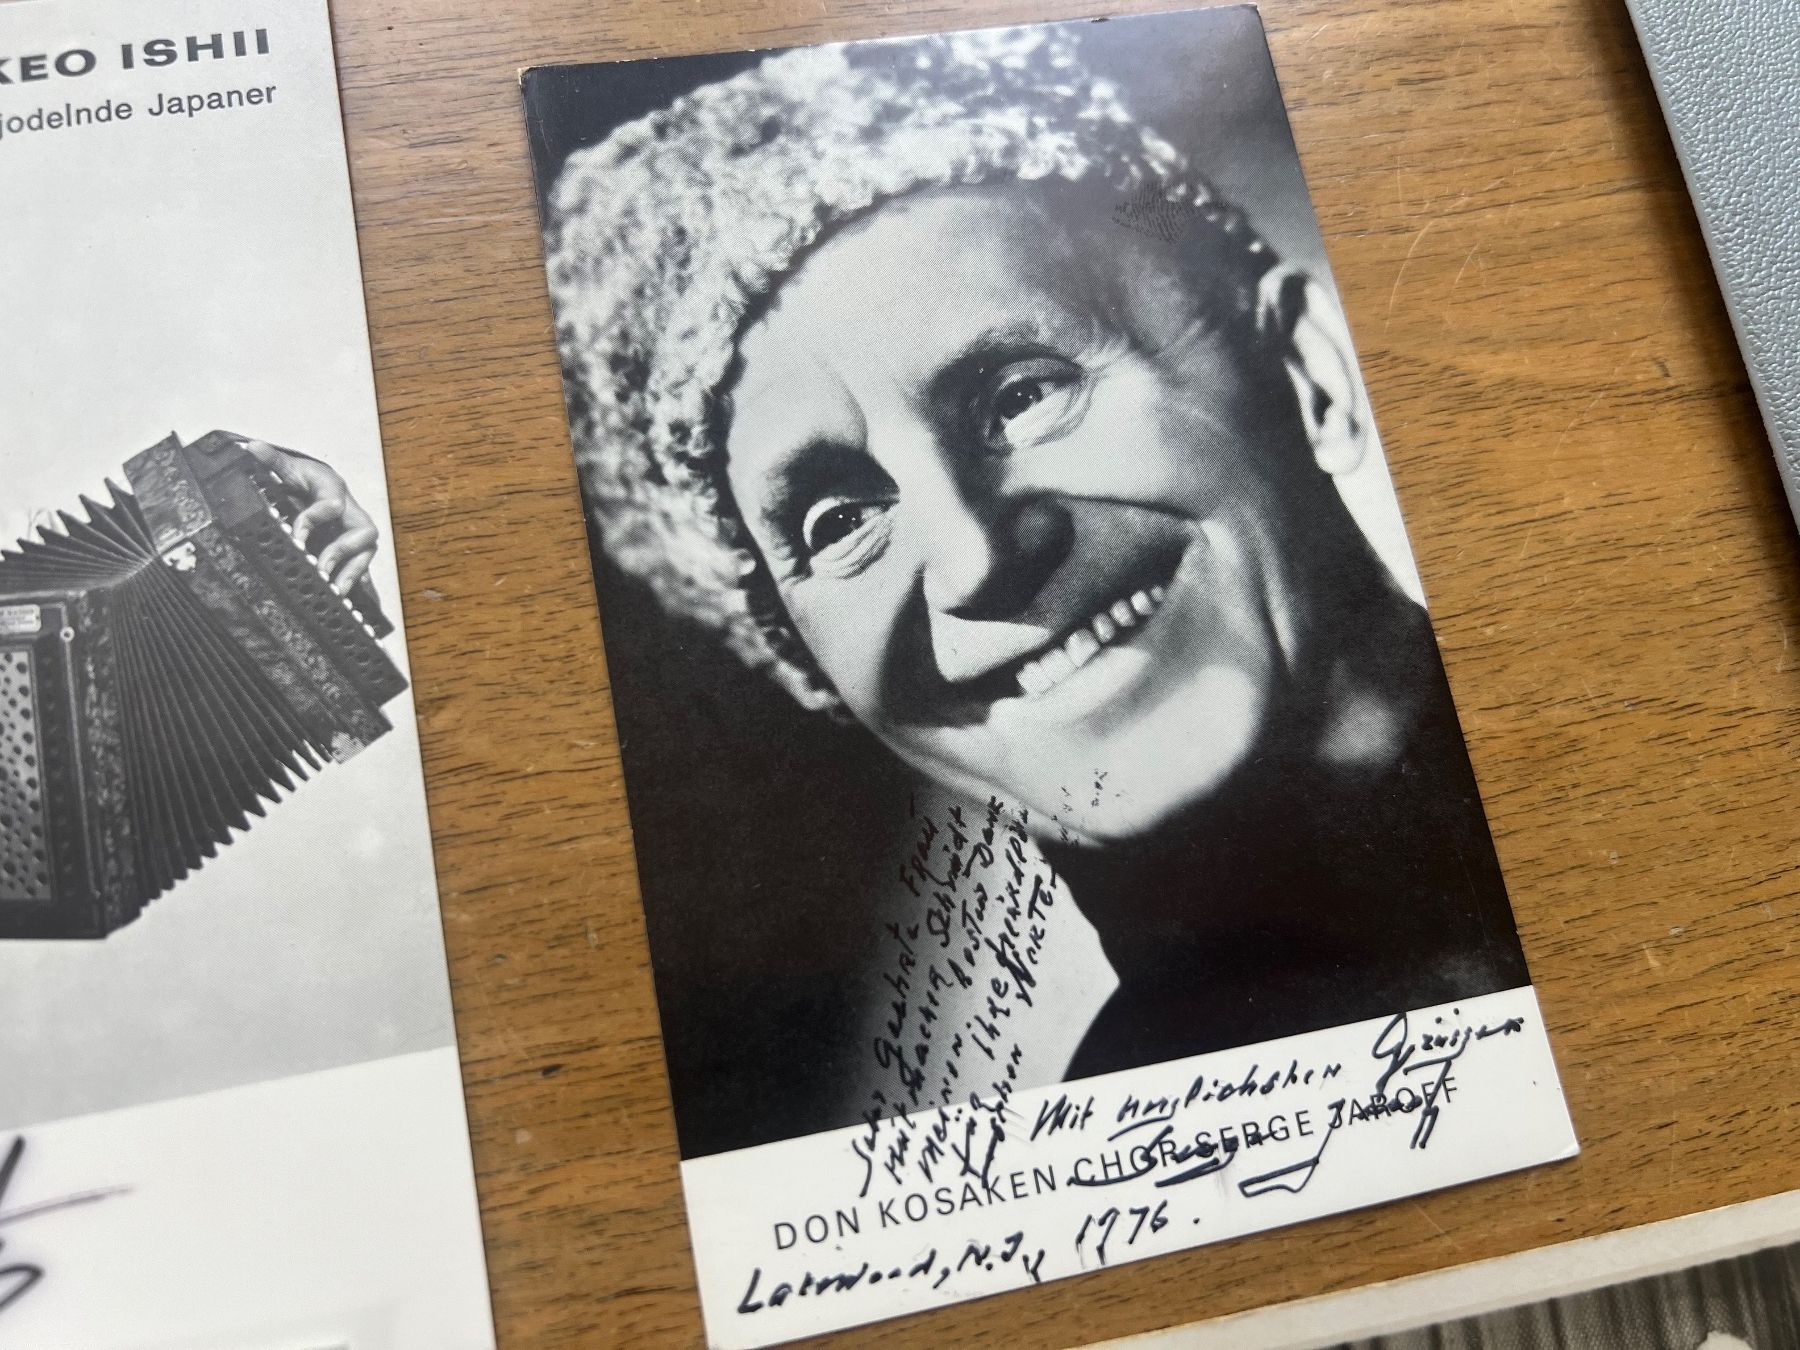 KEO ISHII
jodelnde Japaner
Sehr Geehrte Frau
Schmidt
Meinen besten Dank
für ihre
Karte
Mit herzlichsten Grüssen
DON KOSAKEN CHOR SERGE JAROFF
Lakewood, N.J., 1976.